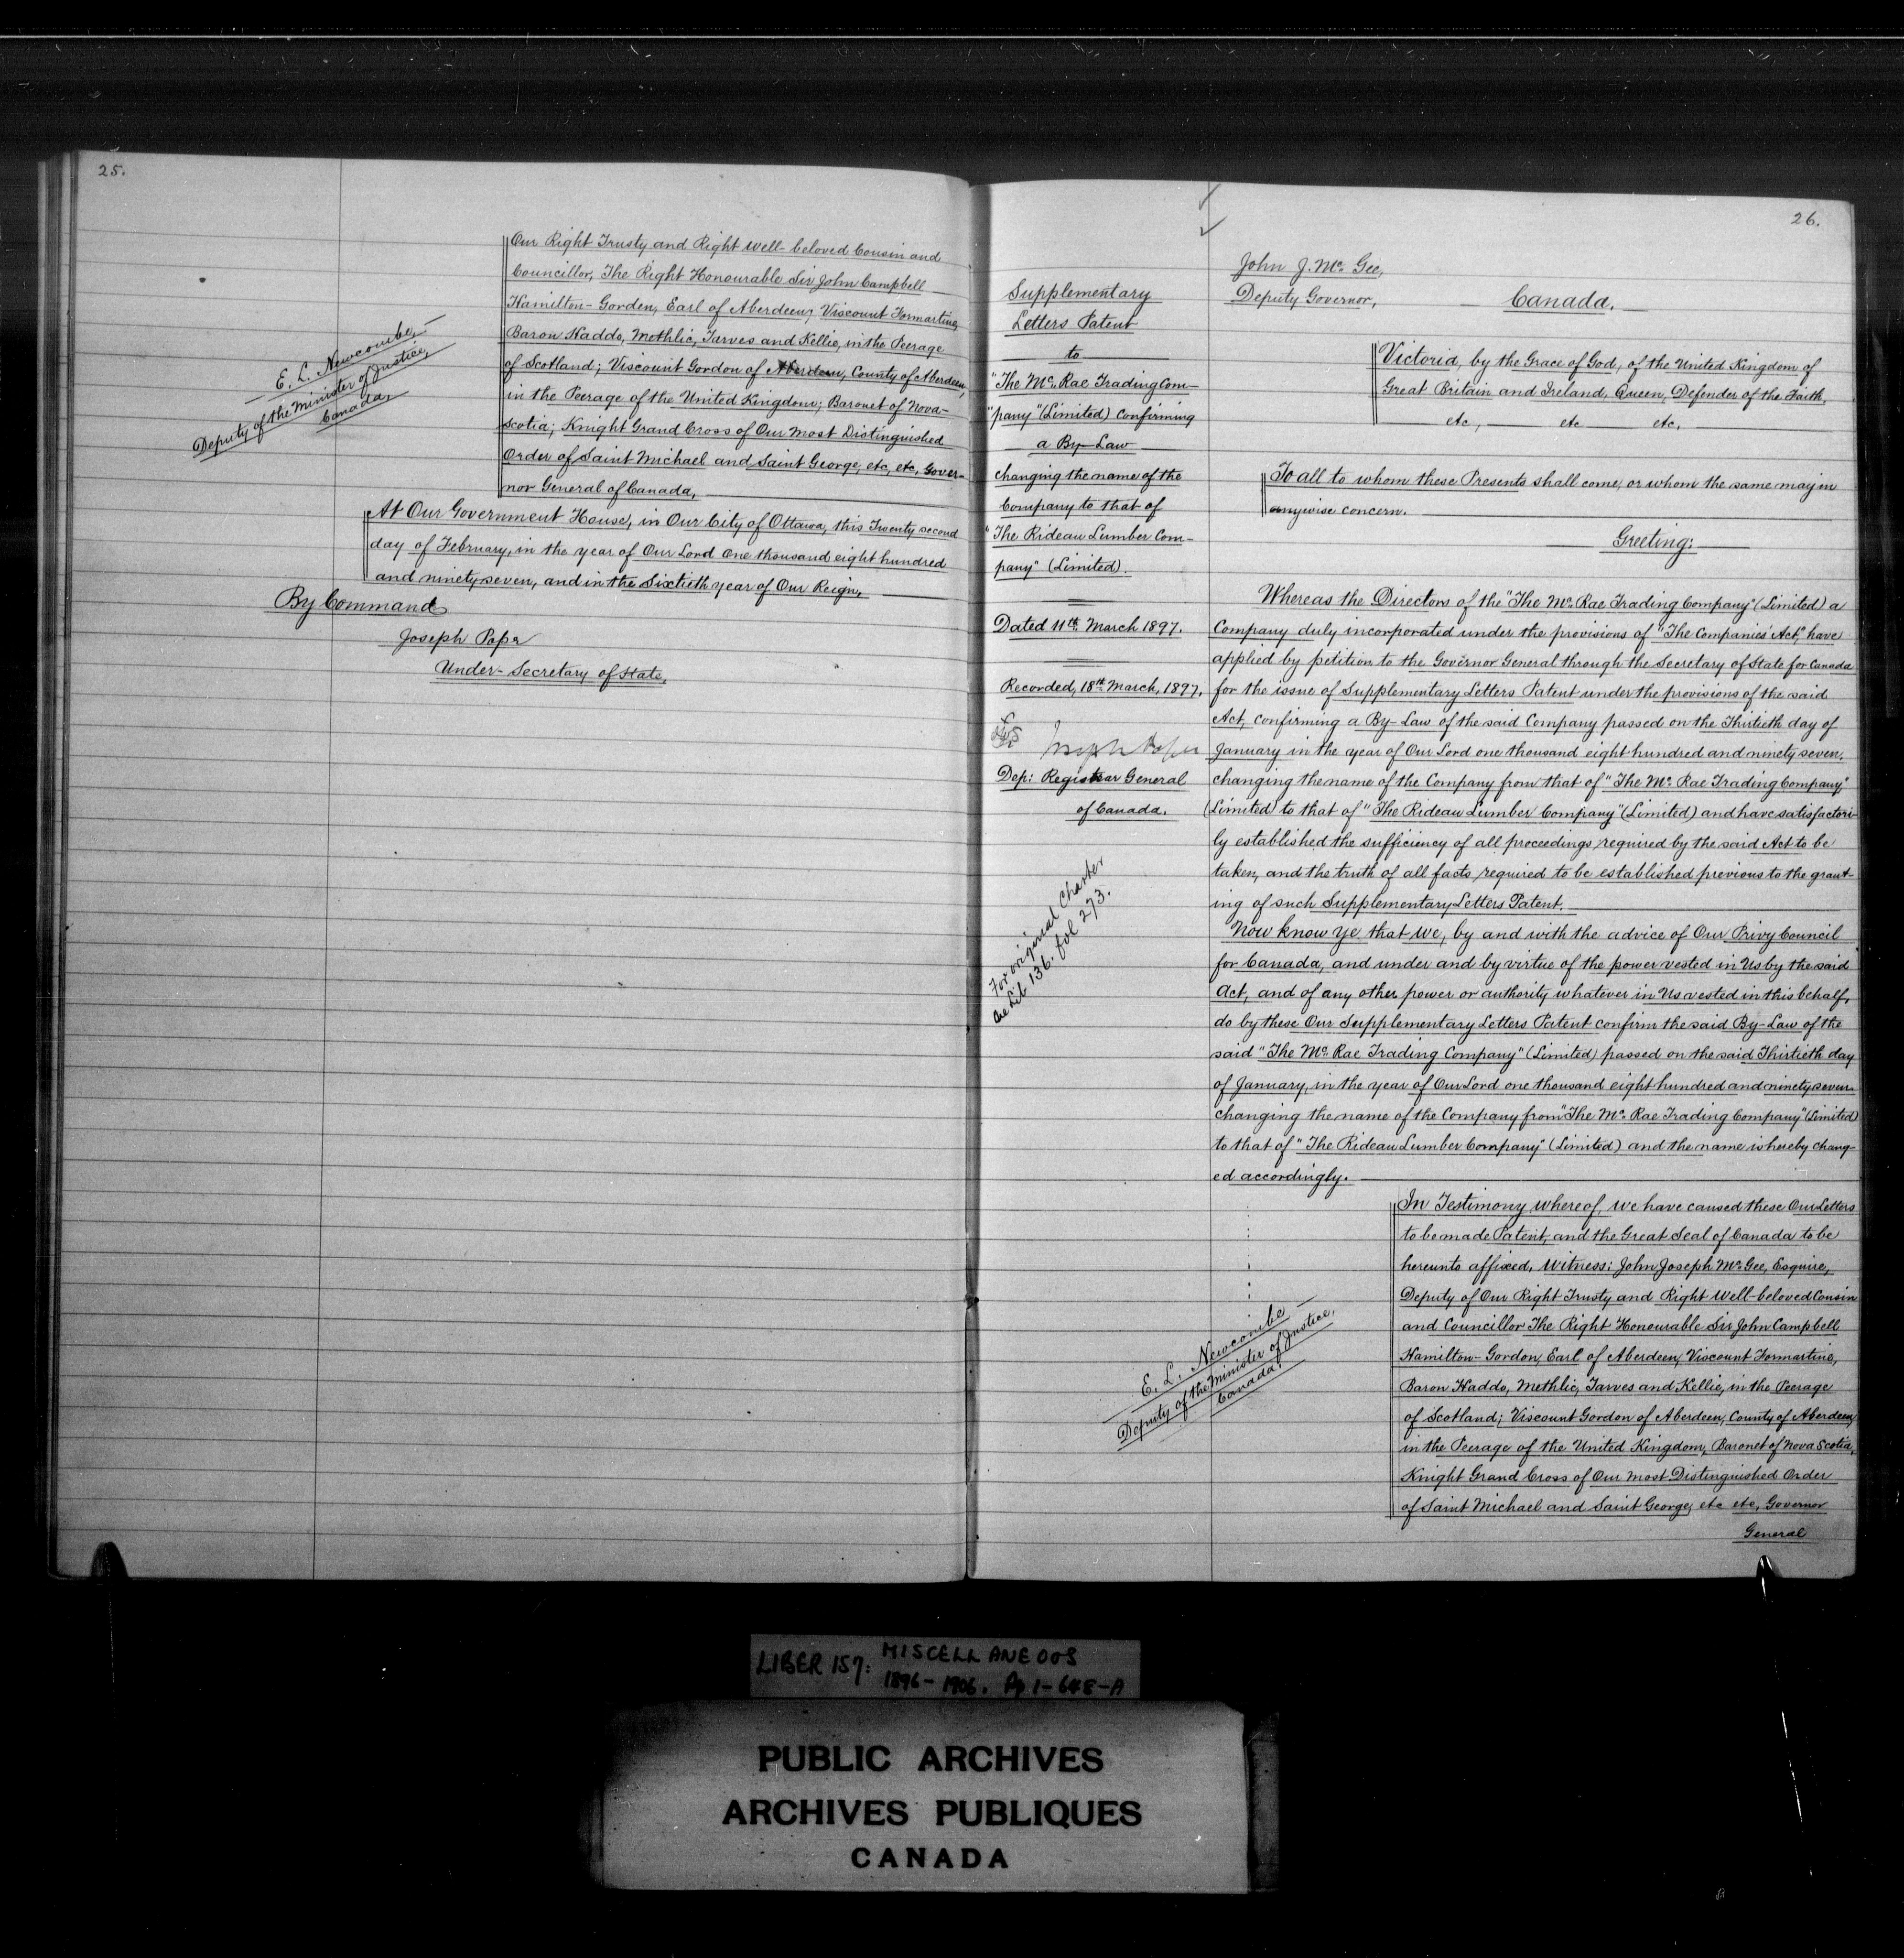 25.
Our Right Trusty and Right Well-beloved Cousin and
Councillor, The Right Honourable Sir John Campbell
Hamilton-Gordon, Earl of Aberdeen, Viscount Formartine,
Baron Haddo, Methlic, Tarves and Kellie, in the Peerage
of Scotland; Viscount Gordon of Aberdeen, County of Aberdeen,
in the Peerage of the United Kingdom; Baronet of Nova-
Scotia; Knight Grand Cross of Our Most Distinguished
Order of Saint Michael and Saint George, etc, etc, Gover-
nor General of Canada,
E. L. Newcombe,
Deputy of the Minister of Justice,
Canada,
At Our Government House, in Our City of Ottawa, this Twenty second
day of February, in the year of Our Lord One thousand eight hundred
and ninety seven, and in the Sixtieth year of Our Reign,
By Command
Joseph Pope
Under-Secretary of State,
26.
Supplementary
Letters Patent
to
"The Mc. Rae Trading Com-
"pany" (Limited) Confirming
a By-Law
changing the name of the
Company to that of
"The Rideau Lumber Com-
pany" (Limited).
Dated 11th. March 1897.
Recorded, 18th. March, 1897,
Joseph Pope
Dep: Registrar General
of Canada.
For original Charter
see Lib 136. fol 273.
John J. Mc. Gee,
Deputy Governor,
Canada,
Victoria, by the Grace of God, of the United Kingdom of
Great Britain and Ireland, Queen, Defender of the Faith,
etc, etc etc,
To all to whom these Presents shall come, or whom the same may in
anywise concern.
Greeting:
Whereas the Directors of the "The Mc. Rae Trading Company" (Limited) a
Company duly incorporated under the provisions of "The Companies' Act," have
applied by petition to the Governor General through the Secretary of State for Canada
for the issue of Supplementary Letters Patent under the provisions of the said
Act, confirming a By-Law of the said Company passed on the Thirtieth day of
January in the year of Our Lord one thousand eight hundred and ninety seven,
changing the name of the Company from that of "The Mc. Rae Trading Company"
(Limited) to that of "The Rideau Lumber Company" (Limited) and have satisfactori-
ly established the sufficiency of all proceedings required by the said Act to be
taken, and the truth of all facts required to be established previous to the grant-
ing of such Supplementary Letters Patent.
Now know ye that We, by and with the advice of Our Privy Council
for Canada, and under and by virtue of the power vested in Us by the said
Act, and of any other power or authority whatever in Us vested in this behalf,
do by these Our Supplementary Letters Patent confirm the said By-Law of the
said "The Mc. Rae Trading Company" (Limited) passed on the said Thirtieth day
of January, in the year of Our Lord one thousand eight hundred and ninety seven
changing the name of the Company from "The Mc. Rae Trading Company" (Limited)
to that of "The Rideau Lumber Company" (Limited) and the name is hereby chang-
ed accordingly.
In Testimony whereof, We have caused these Our Letters
to be made Patent, and the Great Seal of Canada to be
hereunto affixed, Witness: John Joseph Mc. Gee, Esquire,
Deputy of Our Right Trusty and Right Well-beloved Cousin
and Councillor The Right Honourable Sir John Campbell
Hamilton-Gordon, Earl of Aberdeen, Viscount Formartine,
Baron Haddo, Methlic, Tarves and Kellie, in the Peerage
of Scotland; Viscount Gordon of Aberdeen, County of Aberdeen,
in the Peerage of the United Kingdom, Baronet of Nova Scotia,
Knight Grand Cross of Our Most Distinguished Order
of Saint Michael and Saint George, etc etc, Governor
General
E. L. Newcombe
Deputy of the Minister of Justice,
Canada,
LIBER 157: MISCELLANEOUS
1896-1906. Pp 1-648-A
PUBLIC ARCHIVES
ARCHIVES PUBLIQUES
CANADA